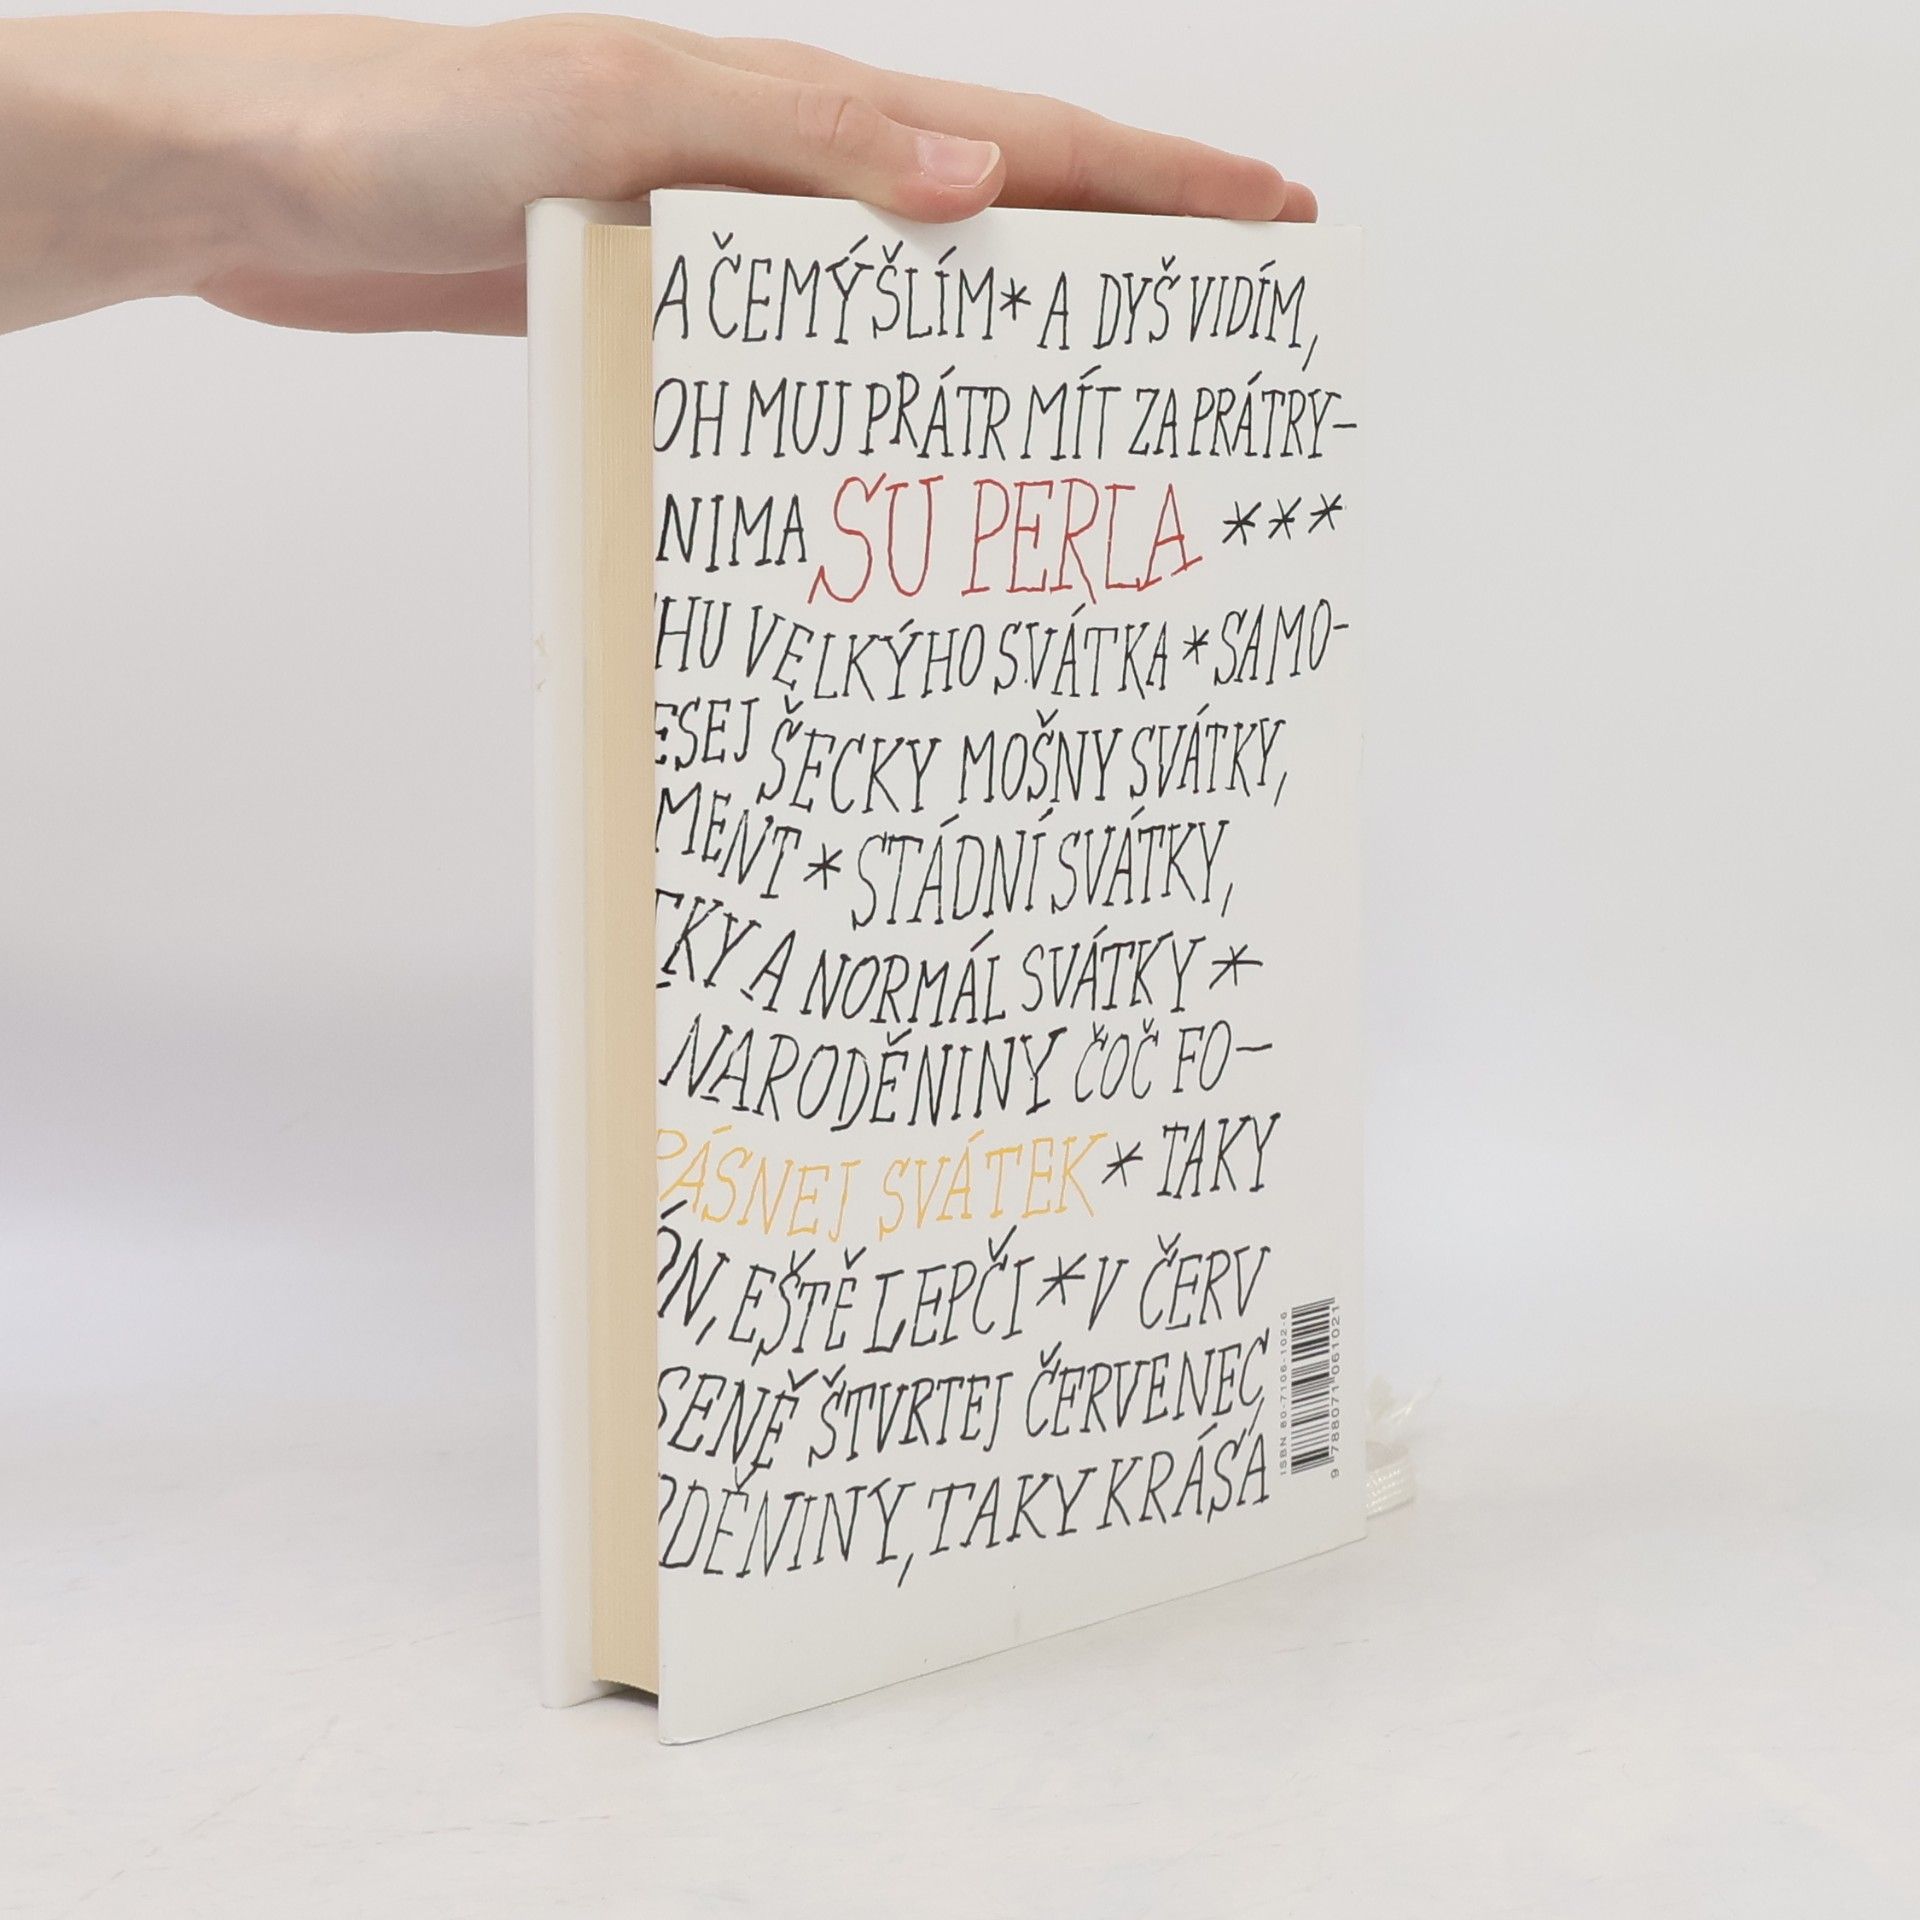 A ČEMÝŠLÍM * A DYŠ VIDÍM,
OH MUJ PRÁTR MÍT ZA PRÁTRY-
NIMA SU PERLA ***
HU VELKÝHO SVÁTKA * SAMO-
ESEJ ŠECKY MOŠNY SVÁTKY,
MENT * STÁDNÍ SVÁTKY,
TKY A NORMÁL SVÁTKY *
NARODĚNINY ČOČ FO-
PÁSNEJ SVÁTEK * TAKY
ÓN, EŠTĚ LEPČI * V ČERV
SENĚ ŠTVRTEJ ČERVENEC
DĚNINY, TAKY KRÁSÁ
ISBN 80-7106-102-6
9 788071 061021